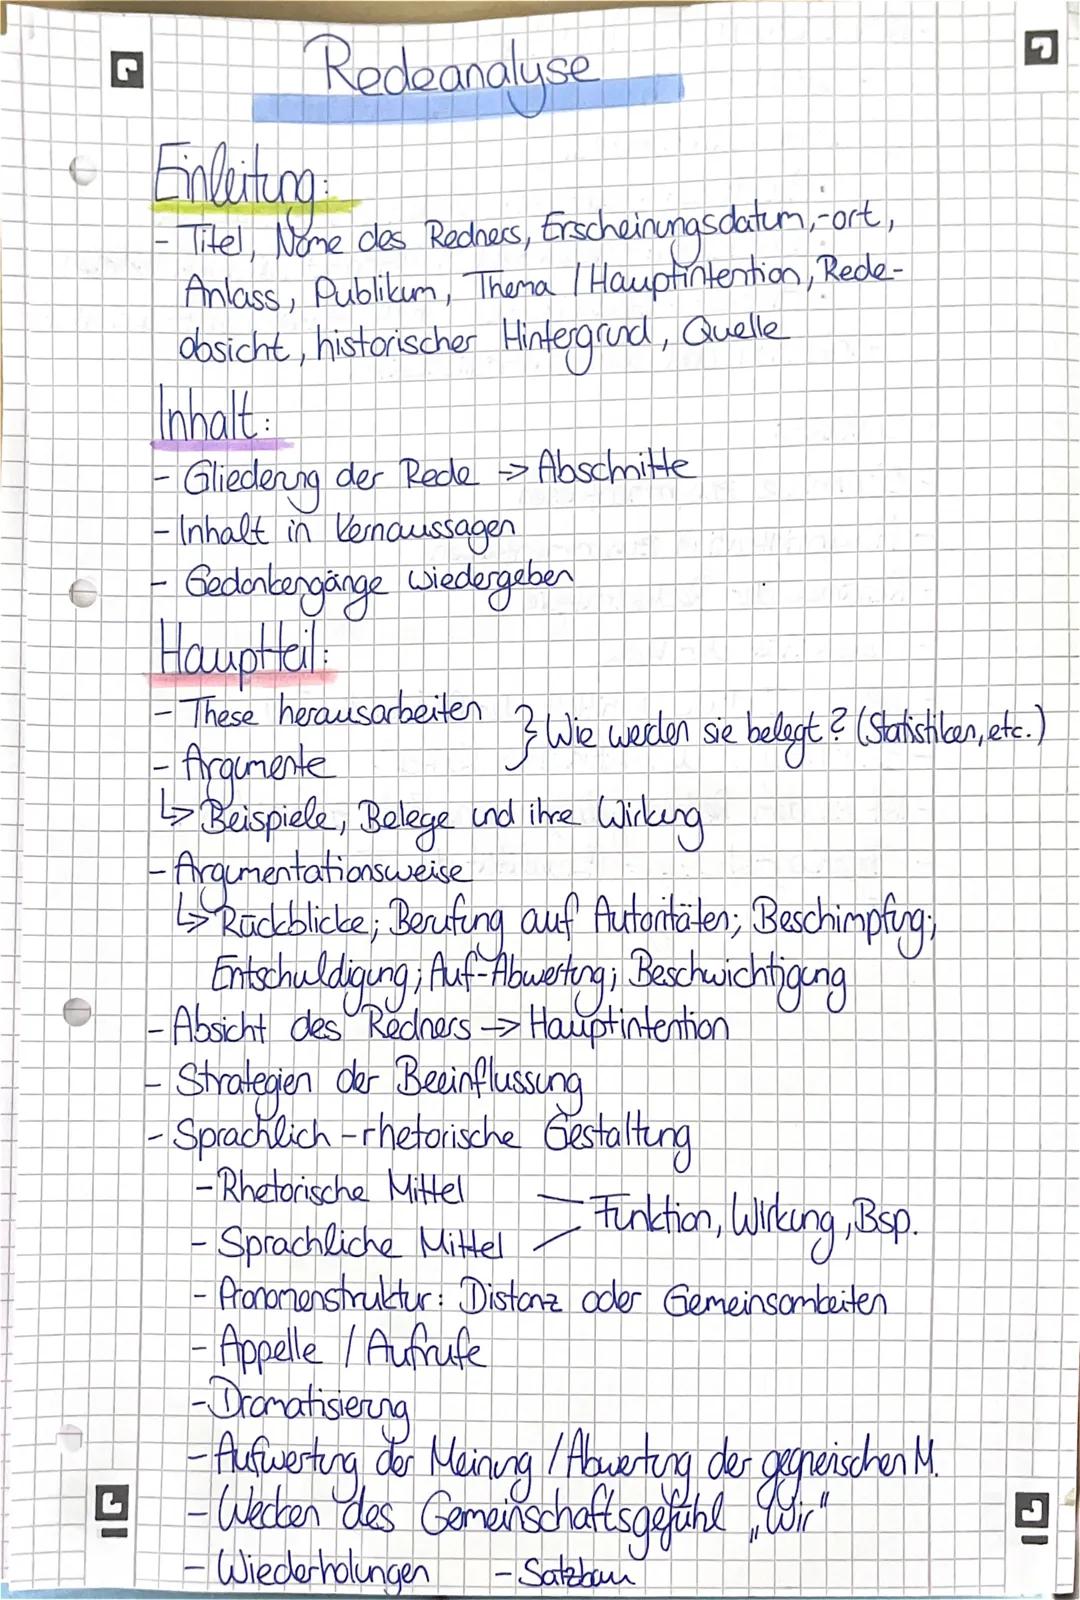 Redeanalyse
Einleitung:
- Titel, Name des Redners, Erscheinungsdatum,-ort,
Anlass, Publikum, Thema / Hauptintention, Rede-
absicht, historischer Hintergrund, Quelle
Inhalt:
- Gliederung der Rede -> Abschnitte
- Inhalt in Kernaussagen
- Gedankengänge wiedergeben
Hauptteil:
- These herausarbeiten } Wie werden sie belegt? (Statistiken, etc.)
- Argumente
↳ Beispiele, Belege und ihre Wirkung
- Argumentationsweise
↳ Rückblicke; Berufung auf Autoritäten; Beschimpfung;
Entschuldigung; Auf-Abwertung; Beschwichtigung
- Absicht des Redners -> Hauptintention
- Strategien der Beeinflussung
- Sprachlich-rhetorische Gestaltung
- Rhetorische Mittel
- Sprachliche Mittel
Funktion, Wirkung, Bsp.
- Pronomenstruktur: Distanz oder Gemeinsamkeiten
- Appelle / Aufrufe
- Dramatisierung
- Aufwertung der Meinung / Abwertung der gegnerischen M.
- Wecken des Gemeinschaftsgefühl „Wir"
- Wiederholungen - Satzbau